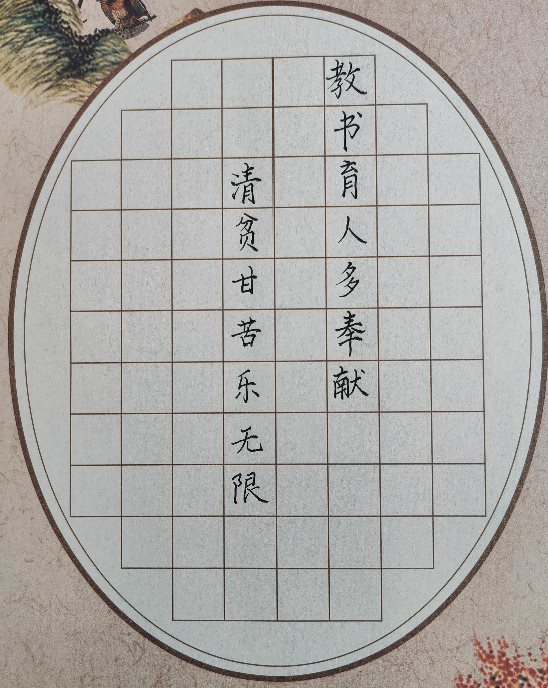 教书育人多奉献
清贫甘苦乐无限